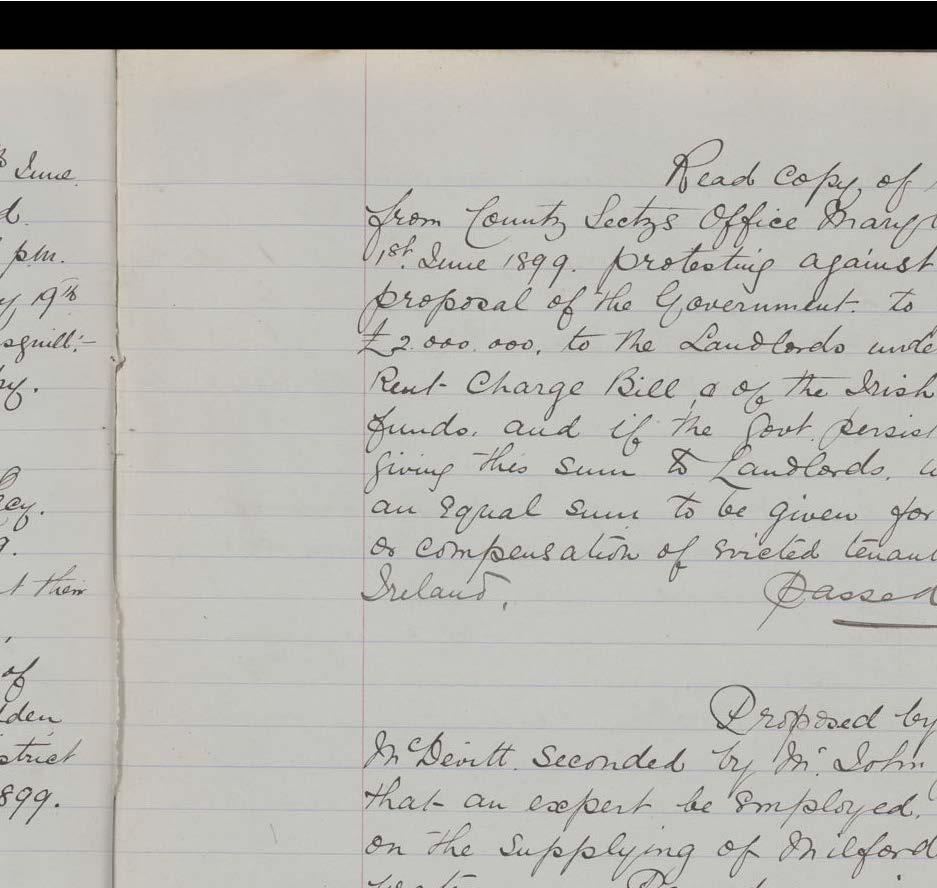 June
d.
pm.
19th
of
strict
899.
Read copy, of
from County Sectys Office Mary
1st. June 1899. protesting against
proposal of the Government. to
£2.000.000. to the Landlords unde
Rent Charge Bill, & of the Irish
funds. and if the Govt. persist
giving this sum to Landlords. w
an Equal sum to be given for
or compensation of Evicted tenant
Ireland,
Passed
Proposed by
McDevitt. Seconded by Mr. John
that an expert be Employed.
on the Supplying of Milford